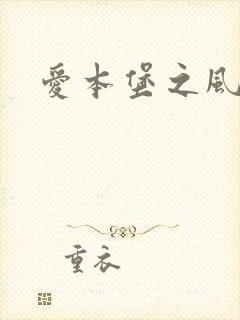 愛本堡之風
重衣